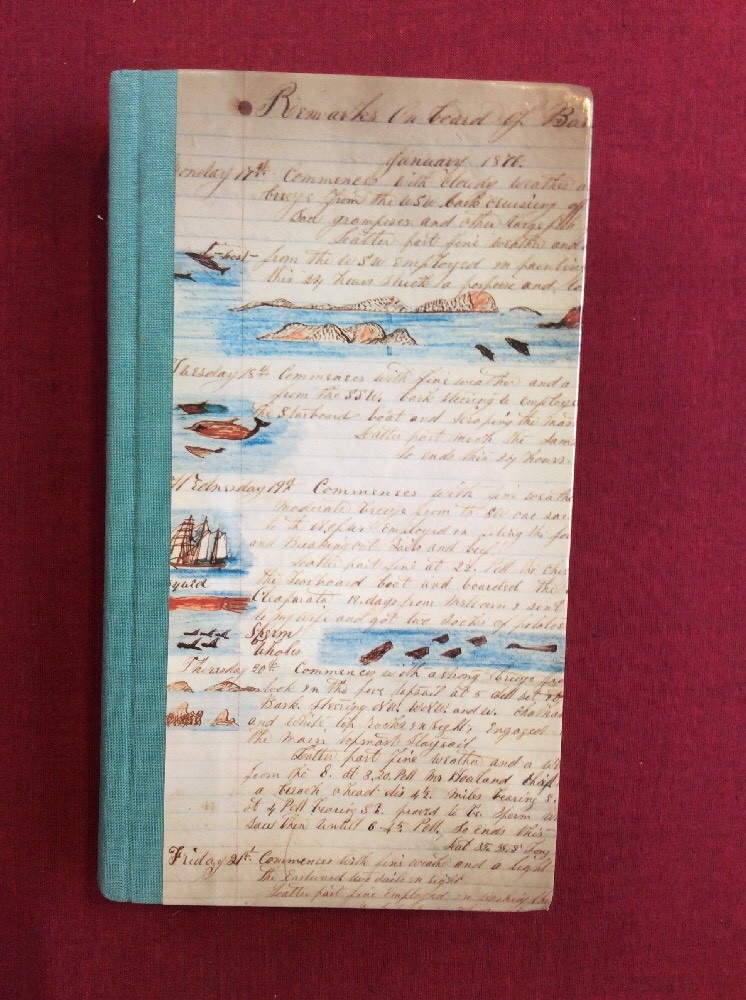 Remarks On board of Bar
January 1876.
Monday 17th Commences with cloudy weather a
breeze from the WSW bark cruising off
Saw grampuses and other large fish
Latter part fine weather and
from the WSW employed in painting
boat
this 24 hours struck a porpoise and lo
Tuesday 18th Commences with fine weather and a
from the SSW. bark steering employed
the Starboard boat and scraping the mas
Latter part much the same
So ends this 24 hours.
Wednesday 19th Commences with fine weathe
moderate breeze from the SW one sail
to the employed in the for
and Breaking out and beef
Latter part fine at 2 P.M.
the Larboard boat and boarded the
18 days from Melbourne sent
to my wife and got two sacks of potatoes
Sperm
Whales
Thursday 20th Commences with a strong breeze fro
in the fore topsail at 5 AM set
Bark steering SW. and W.
and White top rocks in sight, Engaged
the main topmast staysail
Latter part fine weather and a
from the E. at 3.20 PM Mr Howland
a breach ahead dis 4½ miles bearing
at 4 PM bearing SE. proved to be Sperm
saw them untill 6.45 PM. So ends this
Lat 35. Long
Friday 21st. Commences with fine weather and a light
the Eastward two sails in sight
Latter part fine Employed in washing the